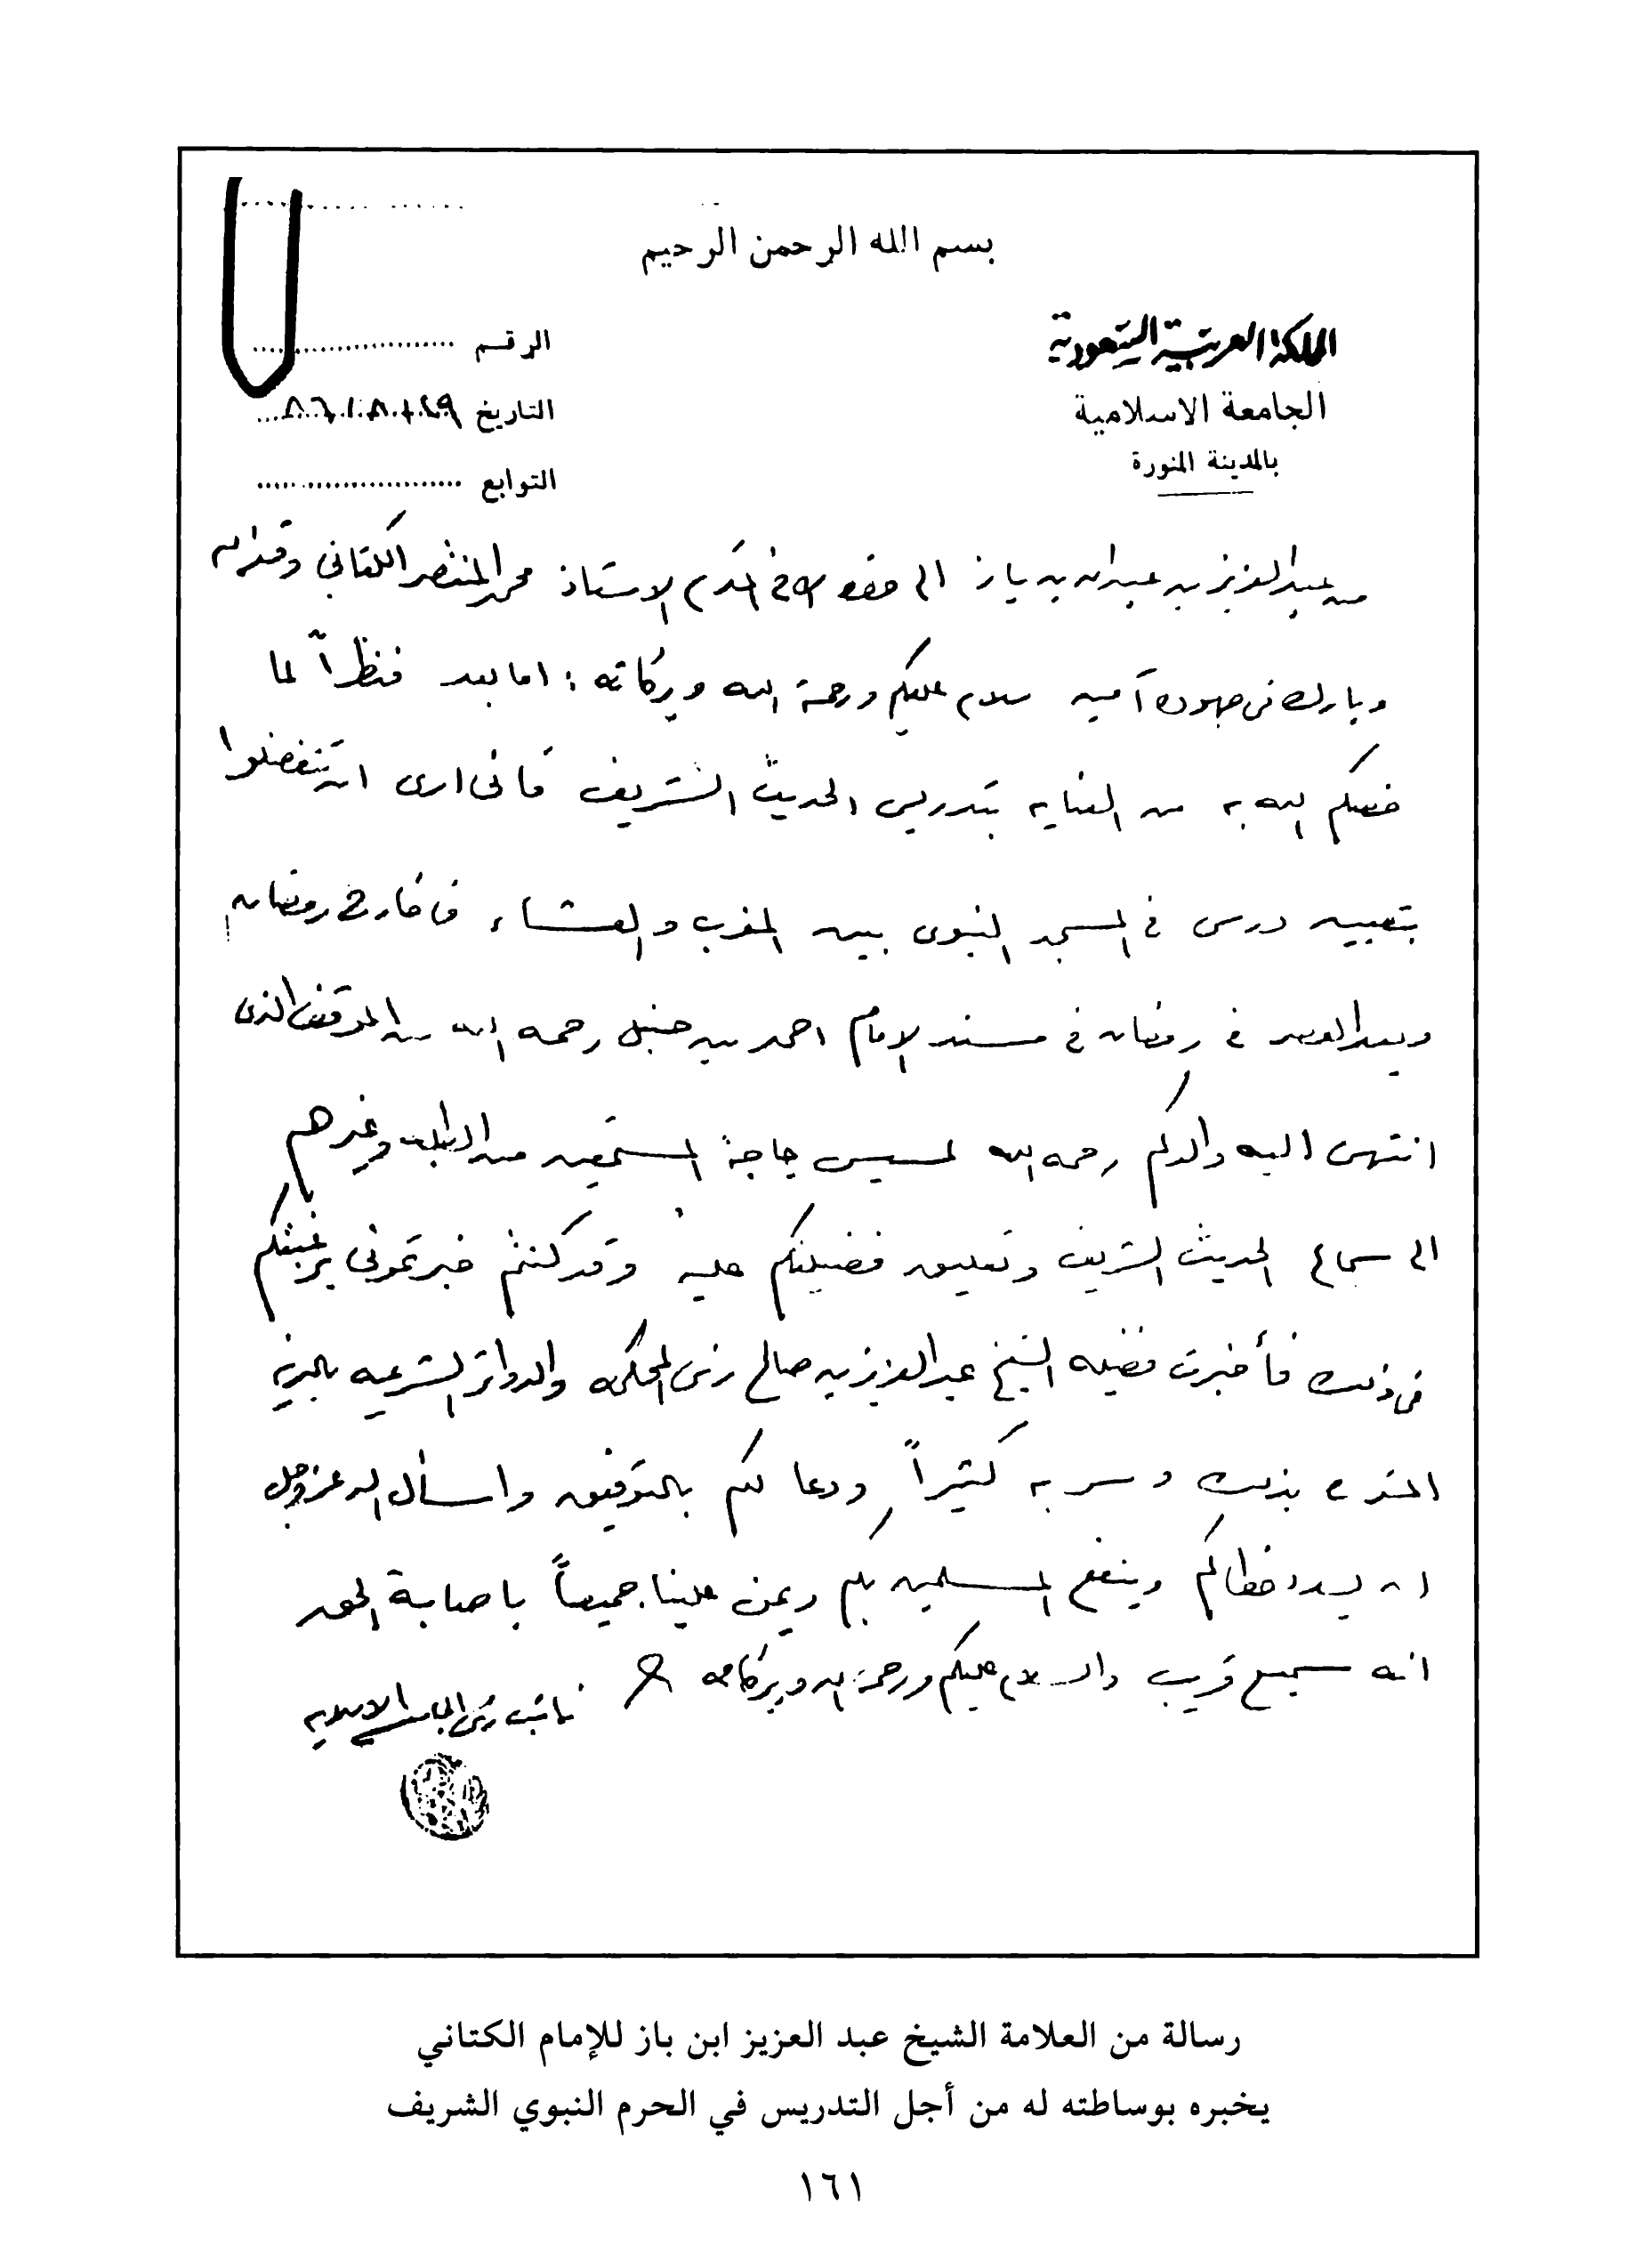 بسم الله الرحمن الرحيم
المملكة العربية السعودية
الجامعة الاسلامية
بالمدينة المنورة
الرقم
التاريخ
التوابع
من عبد العزيز بن عبد الله بن باز الى حضرة الاخ المكرم الاستاذ محمد المنتصر الكتاني وفقه الله
وبارك في جهوده آمين سلام عليكم ورحمة الله وبركاته : اما بعد فنظراً لما
خصكم الله به من العنايه بتدريس الحديث الشريف فانى ارى ان تتفضلوا
بتعيين درس في المسجد النبوى بين المغرب والعشاء في خارج رمضان
وبعد العصر في رمضان في مسند الإمام احمد بن حنبل رحمه الله من الموقف الذى
انتهى اليه والدكم رحمه الله لمسيس حاجة المستمعين من الطلبة وغيرهم
الى سماع الحديث الشريف وتعليق فضيلتكم عليه وقد كنتم خبرتمونى برغبتكم
فى ذلك فأخبرت فضيلة الشيخ عبد العزيز بن صالح رئيس المحكمه والدوائر الشرعيه بالمدينة
المنورة بذلك وسر به كثيراً ودعا لكم بالتوفيق واسأل الله عز وجل
ان يسدد خطاكم وينفع المسلمين بكم ويمن علينا جميعاً باصابة الحق
انه سميع قريب والسلام عليكم ورحمة الله وبركاته
نائب رئيس الجامعة الاسلاميه
رسالة من العلامة الشيخ عبد العزيز ابن باز للإمام الكتاني
يخبره بوساطته له من أجل التدريس في الحرم النبوي الشريف
١٦١